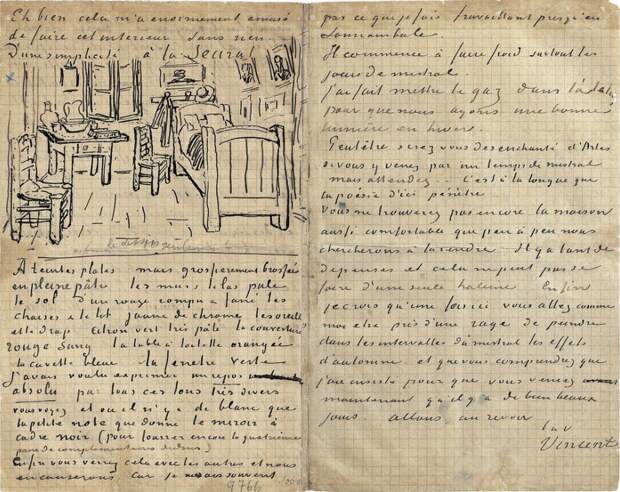 Eh bien cela m'a enormement amusé
de faire cet interieur sans rien
D'une simplicité à la Seurat
A teintes plates mais grossierement brossées
en pleine pâte les murs lilas pale
le sol d'un rouge rompu & fané les
chaises & le lit jaune de chrome les oreillers
et le drap citron vert très pâle la couverture
rouge sang la table à toilette orangée
la cuvette bleue la fenetre verte
J'avais voulu exprimer un repos
absolu par tous ces tons très divers
vous voyez et où il n'y a de blanc que
la petite note que donne le miroir à
cadre noir (pour fourrer encore la quatrième
paire de complementaires dedans)
Enfin vous verrez cela avec les autres et nous
en causerons car je ne sais souvent
9766
pas ce que je fais travaillant presqu'en
somnambule.
Il commence à faire froid surtout les
jours de mistral.
J'ai fait mettre le gaz dans l'
pour que nous ayons une bonne
lumière en hiver.
Peutêtre serez vous desenchanté d'Arles
si vous y venez par un temps de mistral
mais attendez .. C'est à la longue que
la poésie d'ici pénètre
Vous ne trouverez pas encore la maison
aussi comfortable que peu à peu nous
chercherons à la rendre – Il y a tant de
depenses et cela ne peut pas se
faire d'une seule haleine Enfin
je crois qu'une fois ici vous allez comme
moi etre pris d'une rage de peindre
dans les intervalles du mistral les effets
d'automne et que vous comprendrez que
j'ai insisté pour que vous veniez
maintenant qu'il y a de bien beaux
jours allons, au revoir
t. à v.
Vincent